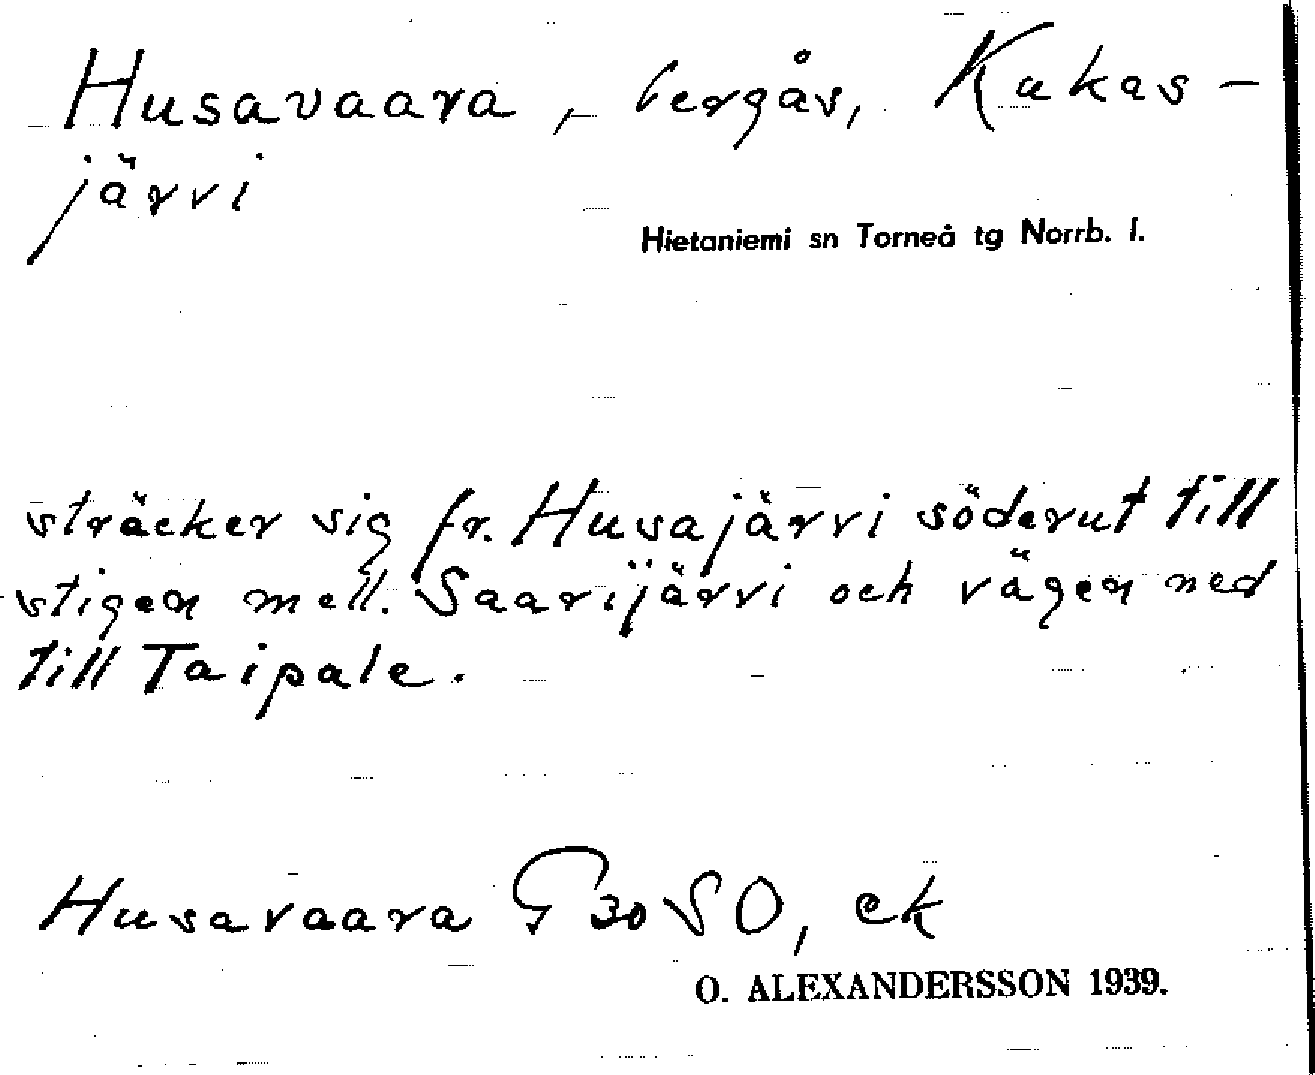 Husavaara, bergås, Kukas-
järvi
Hietaniemi sn Torneå tg Norrb. l.
sträcker sig fr. Husajärvi söderut till
stigen mell. Saarijärvi och vägen ned
till Taipale.
Husavaara G 30 SO, ek
O. ALEXANDERSSON 1939.